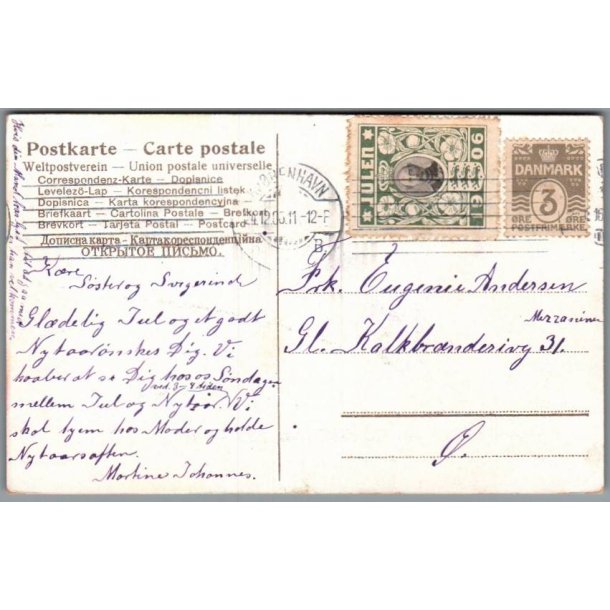 Postkarte — Carte postale
Weltpostverein — Union postale universelle
Correspondenz-Karte — Dopisnice
Levelező-Lap — Korespondencni listek
Dopisnica — Karta korespondencyjna
Briefkaart — Cartolina Postale — Bretkort
Brevkort — Tarjeta Postal — Postcard
Дописна карта — Карткакореспонденційна
ОТКРЫТОЕ ПИСЬМО.
KJØBENHAVN
12.06.11-12-F
B
JULEN
1906
DANMARK
3
ØRE ØRE
POSTFRIMÆRKE
Kære
Søster og Svigerinde
Glædelig Jul og et godt
Nytaar ønskes Dig. Vi
haaber at se Dig hos os Søndagen
ved 3-4 tiden
mellem Jul og Nytaar. Vi
skal hjem hos Moder og holde
Nytaarsaften.
Martine Johannes.
Frk. Eugenie Andersen
Mezzaninen
Gl. Kalkbrænderivej 31.
Ø.